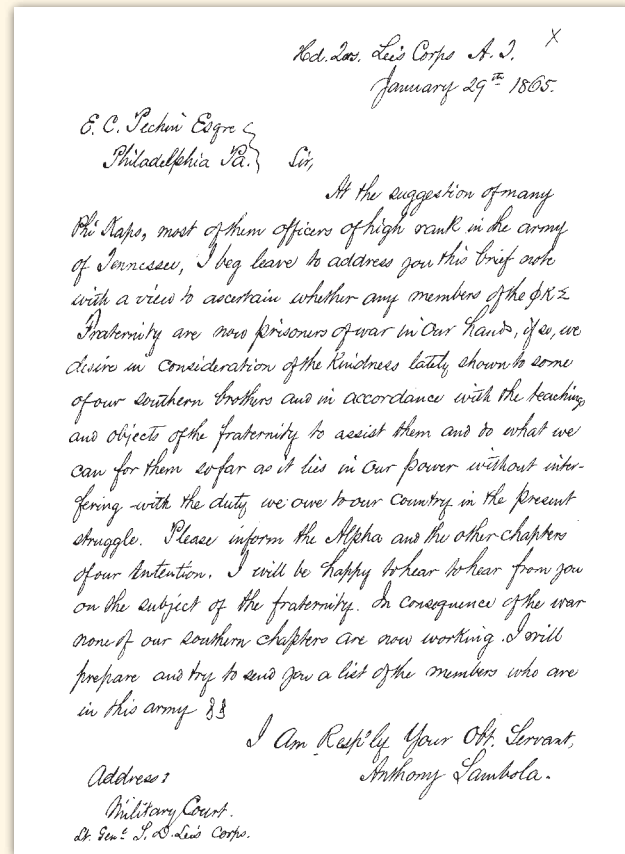 Hd. Qrs. Lee's Corps A. T. X
January 29th 1865.
E. C. Pechin Esqre
Philadelphia Pa. } Sir,
At the suggestion of many
Phi Kaps, most of them officers of high rank in the army
of Tennessee, I beg leave to address you this brief note
with a view to ascertain whether any members of the ΦΚΣ
Fraternity are now prisoners of war in our hands, if so, we
desire in consideration of the kindness lately shown to some
of our southern brothers and in accordance with the teachings
and objects of the fraternity to assist them and do what we
can for them so far as it lies in our power without inter-
fering with the duty we owe to our country in the present
struggle. Please inform the Alpha and the other chapters
of our intention. I will be happy to hear to hear from you
on the subject of the fraternity. In consequence of the war
none of our southern chapters are now working. I will
prepare and try to send you a list of the members who are
in this army
I Am Resp'ly Your Obt. Servant,
Anthony Sambola.
Address:
Military Court.
Lt. Genl. S. D. Lee's Corps.